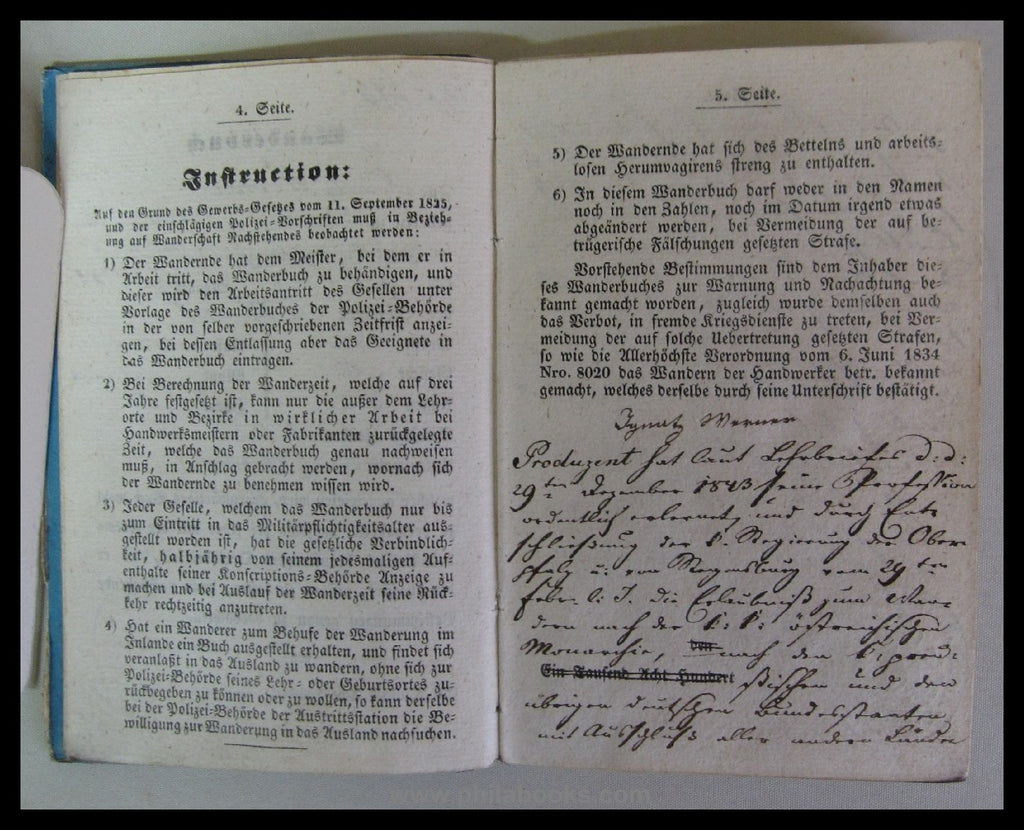 4. Seite.
Instruction:
Auf den Grund des Gewerbs-Gesetzes vom 11. September 1825,
und der einschlägigen Polizei-Vorschriften muß in Bezieh-
ung auf Wanderschaft Nachstehendes beobachtet werden:
1) Der Wandernde hat dem Meister, bei dem er in
Arbeit tritt, das Wanderbuch zu behändigen, und
dieser wird den Arbeitsantritt des Gesellen unter
Vorlage des Wanderbuches der Polizei-Behörde
in der von selber vorgeschriebenen Zeitfrist anzei-
gen, bei dessen Entlassung aber das Geeignete in
das Wanderbuch eintragen.
2) Bei Berechnung der Wanderzeit, welche auf drei
Jahre festgesetzt ist, kann nur die außer dem Lehr-
orte und Bezirke in wirklicher Arbeit bei
Handwerksmeistern oder Fabrikanten zurückgelegte
Zeit, welche das Wanderbuch genau nachweisen
muß, in Anschlag gebracht werden, wornach sich
der Wandernde zu benehmen wissen wird.
3) Jeder Geselle, welchem das Wanderbuch nur bis
zum Eintritt in das Militärpflichtigkeitsalter aus-
gestellt worden ist, hat die gesetzliche Verbindlich-
keit, halbjährig von seinem jedesmaligen Auf-
enthalte seiner Konscriptions-Behörde Anzeige zu
machen und bei Auslauf der Wanderzeit seine Rück-
kehr rechtzeitig anzutreten.
4) Hat ein Wanderer zum Behufe der Wanderung im
Inlande ein Buch ausgestellt erhalten, und findet sich
veranlaßt in das Ausland zu wandern, ohne sich zur
Polizei-Behörde seines Lehr- oder Geburtsortes zu-
rückbegeben zu können oder zu wollen, so kann derselbe
bei der Polizei-Behörde der Austrittsstation die Be-
willigung zur Wanderung in das Ausland nachsuchen.
5. Seite.
5) Der Wandernde hat sich des Bettelns und arbeits-
losen Herumvagirens streng zu enthalten.
6) In diesem Wanderbuch darf weder in den Namen
noch in den Zahlen, noch im Datum irgend etwas
abgeändert werden, bei Vermeidung der auf be-
trügerische Fälschungen gesetzten Strafe.
Vorstehende Bestimmungen sind dem Inhaber die-
ses Wanderbuches zur Warnung und Nachachtung be-
kannt gemacht worden, zugleich wurde demselben auch
das Verbot, in fremde Kriegsdienste zu treten, bei Ver-
meidung der auf solche Uebertretung gesetzten Strafen,
so wie die Allerhöchste Verordnung vom 6. Juni 1834
Nro. 8020 das Wandern der Handwerker betr. bekannt
gemacht, welches derselbe durch seine Unterschrift bestätigt.
Ignatz Werner
Produzent hat laut Lehrbriefes d. d.
29ten Dezember 1843 seine Profession
ordentlich erlernet, und durch Ent-
schließung der k. Regierung der Ober-
pfalz u. von Regensburg vom 29ten
Febr. l. J. die Erlaubniß zum Wan-
dern nach der k: k: östreichischen
Monarchie, den nach den k: preu-
Ein Tausend Acht Hundert ßischen und den
übrigen deutschen Bundesstaaten
mit Ausschluß aller andern Länder
www.philabooks.com